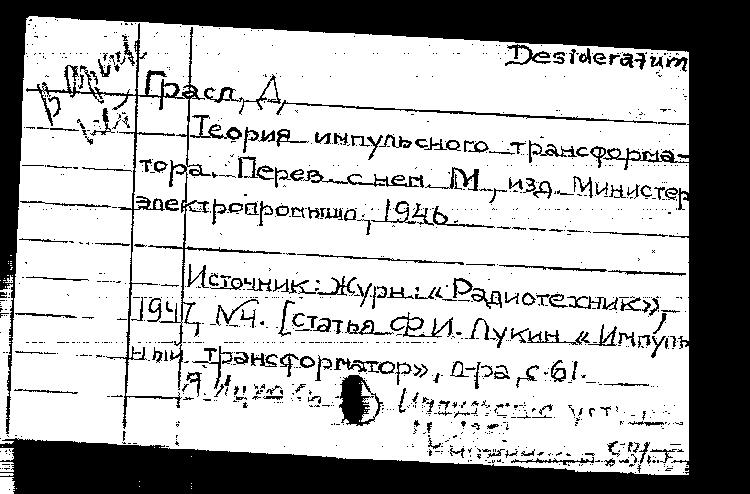 Desideratum
в
нет
Грасл, Д,
Теория импульсного трансформа-
тора. Перев. с нем. М, изд. Министер
электропромышл, 1946.
Источник: Журн.: «Радиотехник»,
1947, №4. [статья Ф.И. Лукин «Импуль
ный трансформатор», л-ра, с.61.